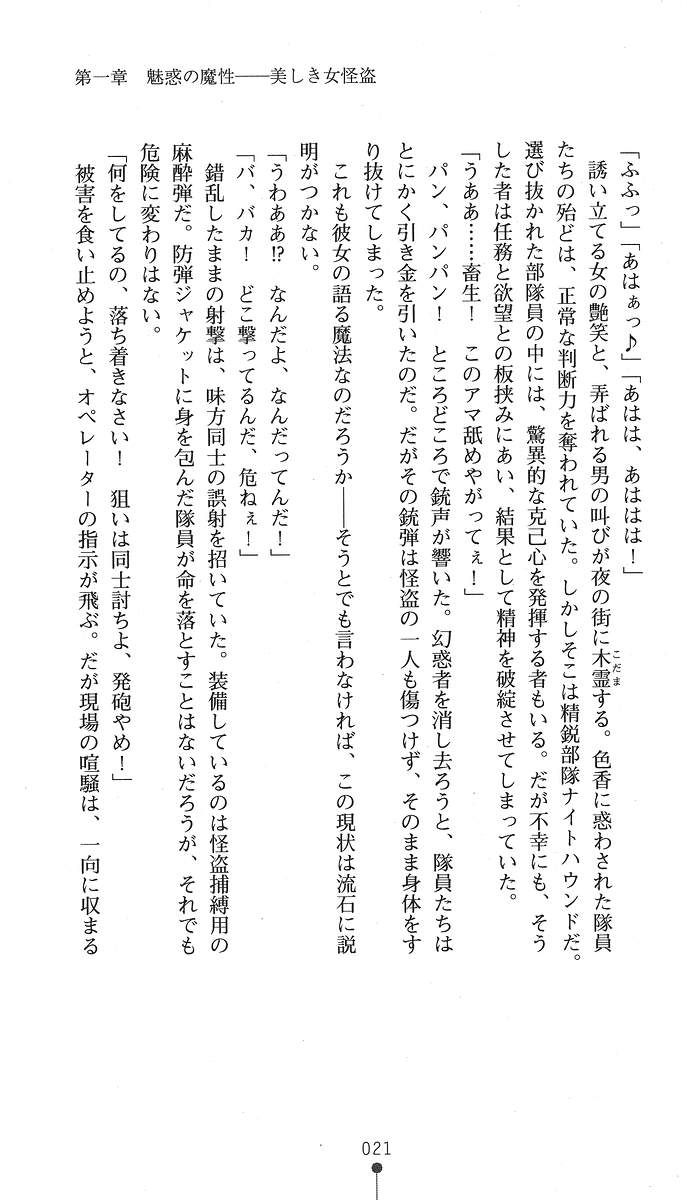 第一章　魅惑の魔性――美しき女怪盗
「ふふっ」「あはぁっ♪」「あはは、あははは！」
　誘い立てる女の艶笑と、弄ばれる男の叫びが夜の街に木霊する。色香に惑わされた隊員
こだま
たちの殆どは、正常な判断力を奪われていた。しかしそこは精鋭部隊ナイトハウンドだ。
選び抜かれた部隊員の中には、驚異的な克己心を発揮する者もいる。だが不幸にも、そう
した者は任務と欲望との板挟みにあい、結果として精神を破綻させてしまっていた。
「うああ……畜生！　このアマ舐めやがってぇ！」
　パン、パンパン！　ところどころで銃声が響いた。幻惑者を消し去ろうと、隊員たちは
とにかく引き金を引いたのだ。だがその銃弾は怪盗の一人も傷つけず、そのまま身体をす
り抜けてしまった。
　これも彼女の語る魔法なのだろうか――そうとでも言わなければ、この現状は流石に説
明がつかない。
「うわああ!?　なんだよ、なんだってんだ！」
「バ、バカ！　どこ撃ってるんだ、危ねぇ！」
　錯乱したままの射撃は、味方同士の誤射を招いていた。装備しているのは怪盗捕縛用の
麻酔弾だ。防弾ジャケットに身を包んだ隊員が命を落とすことはないだろうが、それでも
危険に変わりはない。
「何をしてるの、落ち着きなさい！　狙いは同士討ちよ、発砲やめ！」
　被害を食い止めようと、オペレーターの指示が飛ぶ。だが現場の喧騒は、一向に収まる
021